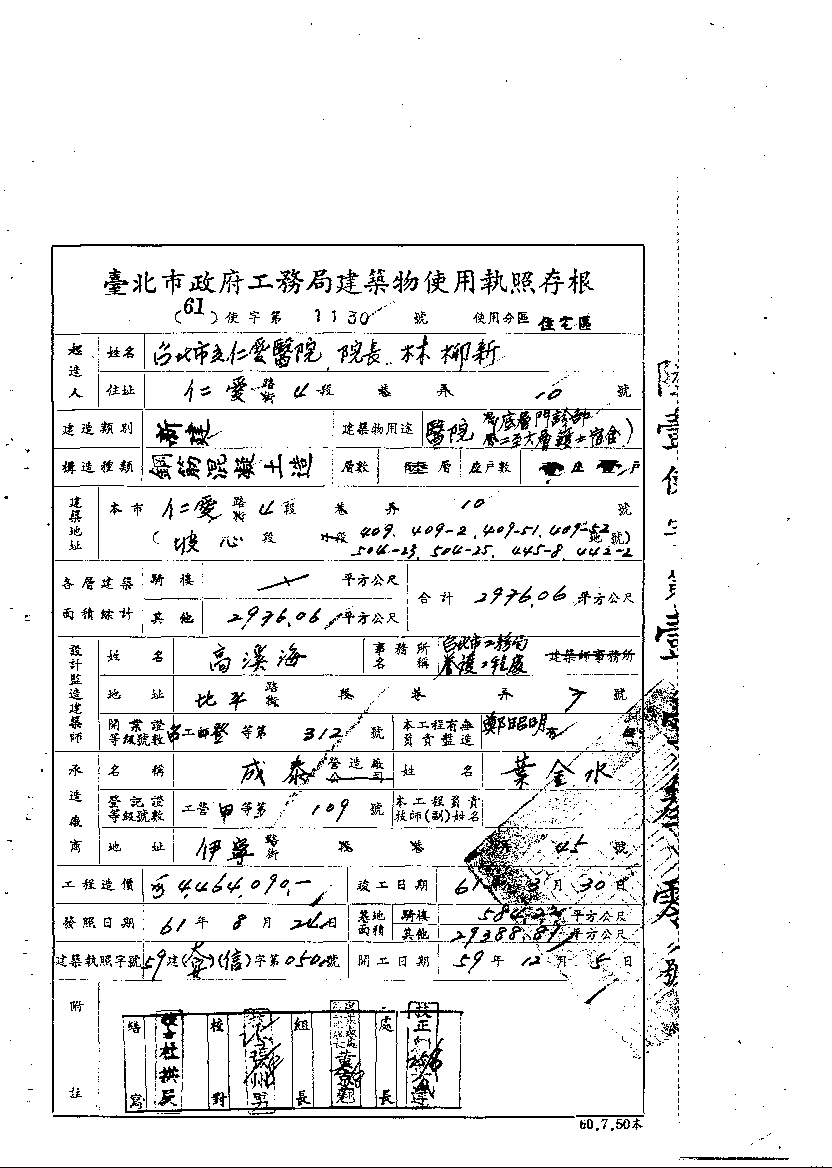 臺北市政府工務局建築物使用執照存根
(61)使字第 1130 號 使用分區 住宅區
起造人 姓名 台北市立仁愛醫院, 院長 林柳新
住址 仁愛 路街 4 段 巷 弄 10 號
建造類別 新建 建築物用途 醫院(底層門診部 護士宿舍)
構造種類 鋼筋混凝土造 層數 陸 層 座戶數 座 戶
建築地址 本市 仁愛 路街 4 段 巷 弄 10 號
(坡心 段 小段 409、409-2、409-51、409-52 地號)
504-23、504-25、445-8、442-2
各層建築面積綜計 騎樓 平方公尺 合計 2976.06 平方公尺
其他 2976.06 平方公尺
設計監造建築師 姓名 高溪海 事務所名稱 台北市工務局養護工程處 建築師事務所
地址 北平 路街 段 巷 弄 7 號
開業證等級號數 工師登 等第 312 號 本工程有無負責監造 鄭昭明
承造廠商 名稱 成泰 營造廠公司 姓名 葉金水
登記證等級號數 工營 甲 等第 109 號 本工程負責技師(副)姓名
地址 伊寧 路街 45 號
工程造價 4,464,090.- 竣工日期 61 年 3 月 30 日
發照日期 61 年 8 月 24 日 基地面積 騎樓 平方公尺
其他 29388.89 平方公尺
建築執照字號 59 建( )(信)字第 050 號 開工日期 59 年 12 月 5 日
附註
繕寫 校對 組長 處長 校正
60.7.50本